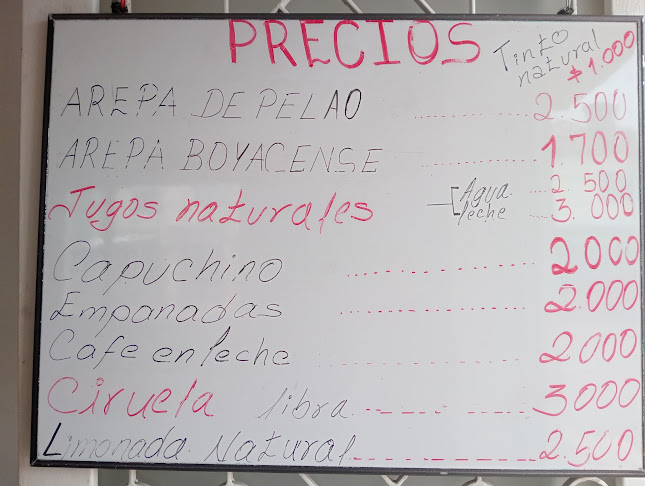 PRECIOS
Tinto
natural
$1.000
AREPA DE PELAO ........ 2.500
AREPA BOYACENSE ........ 1.700
Jugos naturales [Agua ... 2.500
leche ... 3.000
Capuchino ........ 2000
Empanadas ........ 2.000
Cafe en leche ........ 2000
Ciruela libra ------ 3000
Limonada Natural ------ 2.500